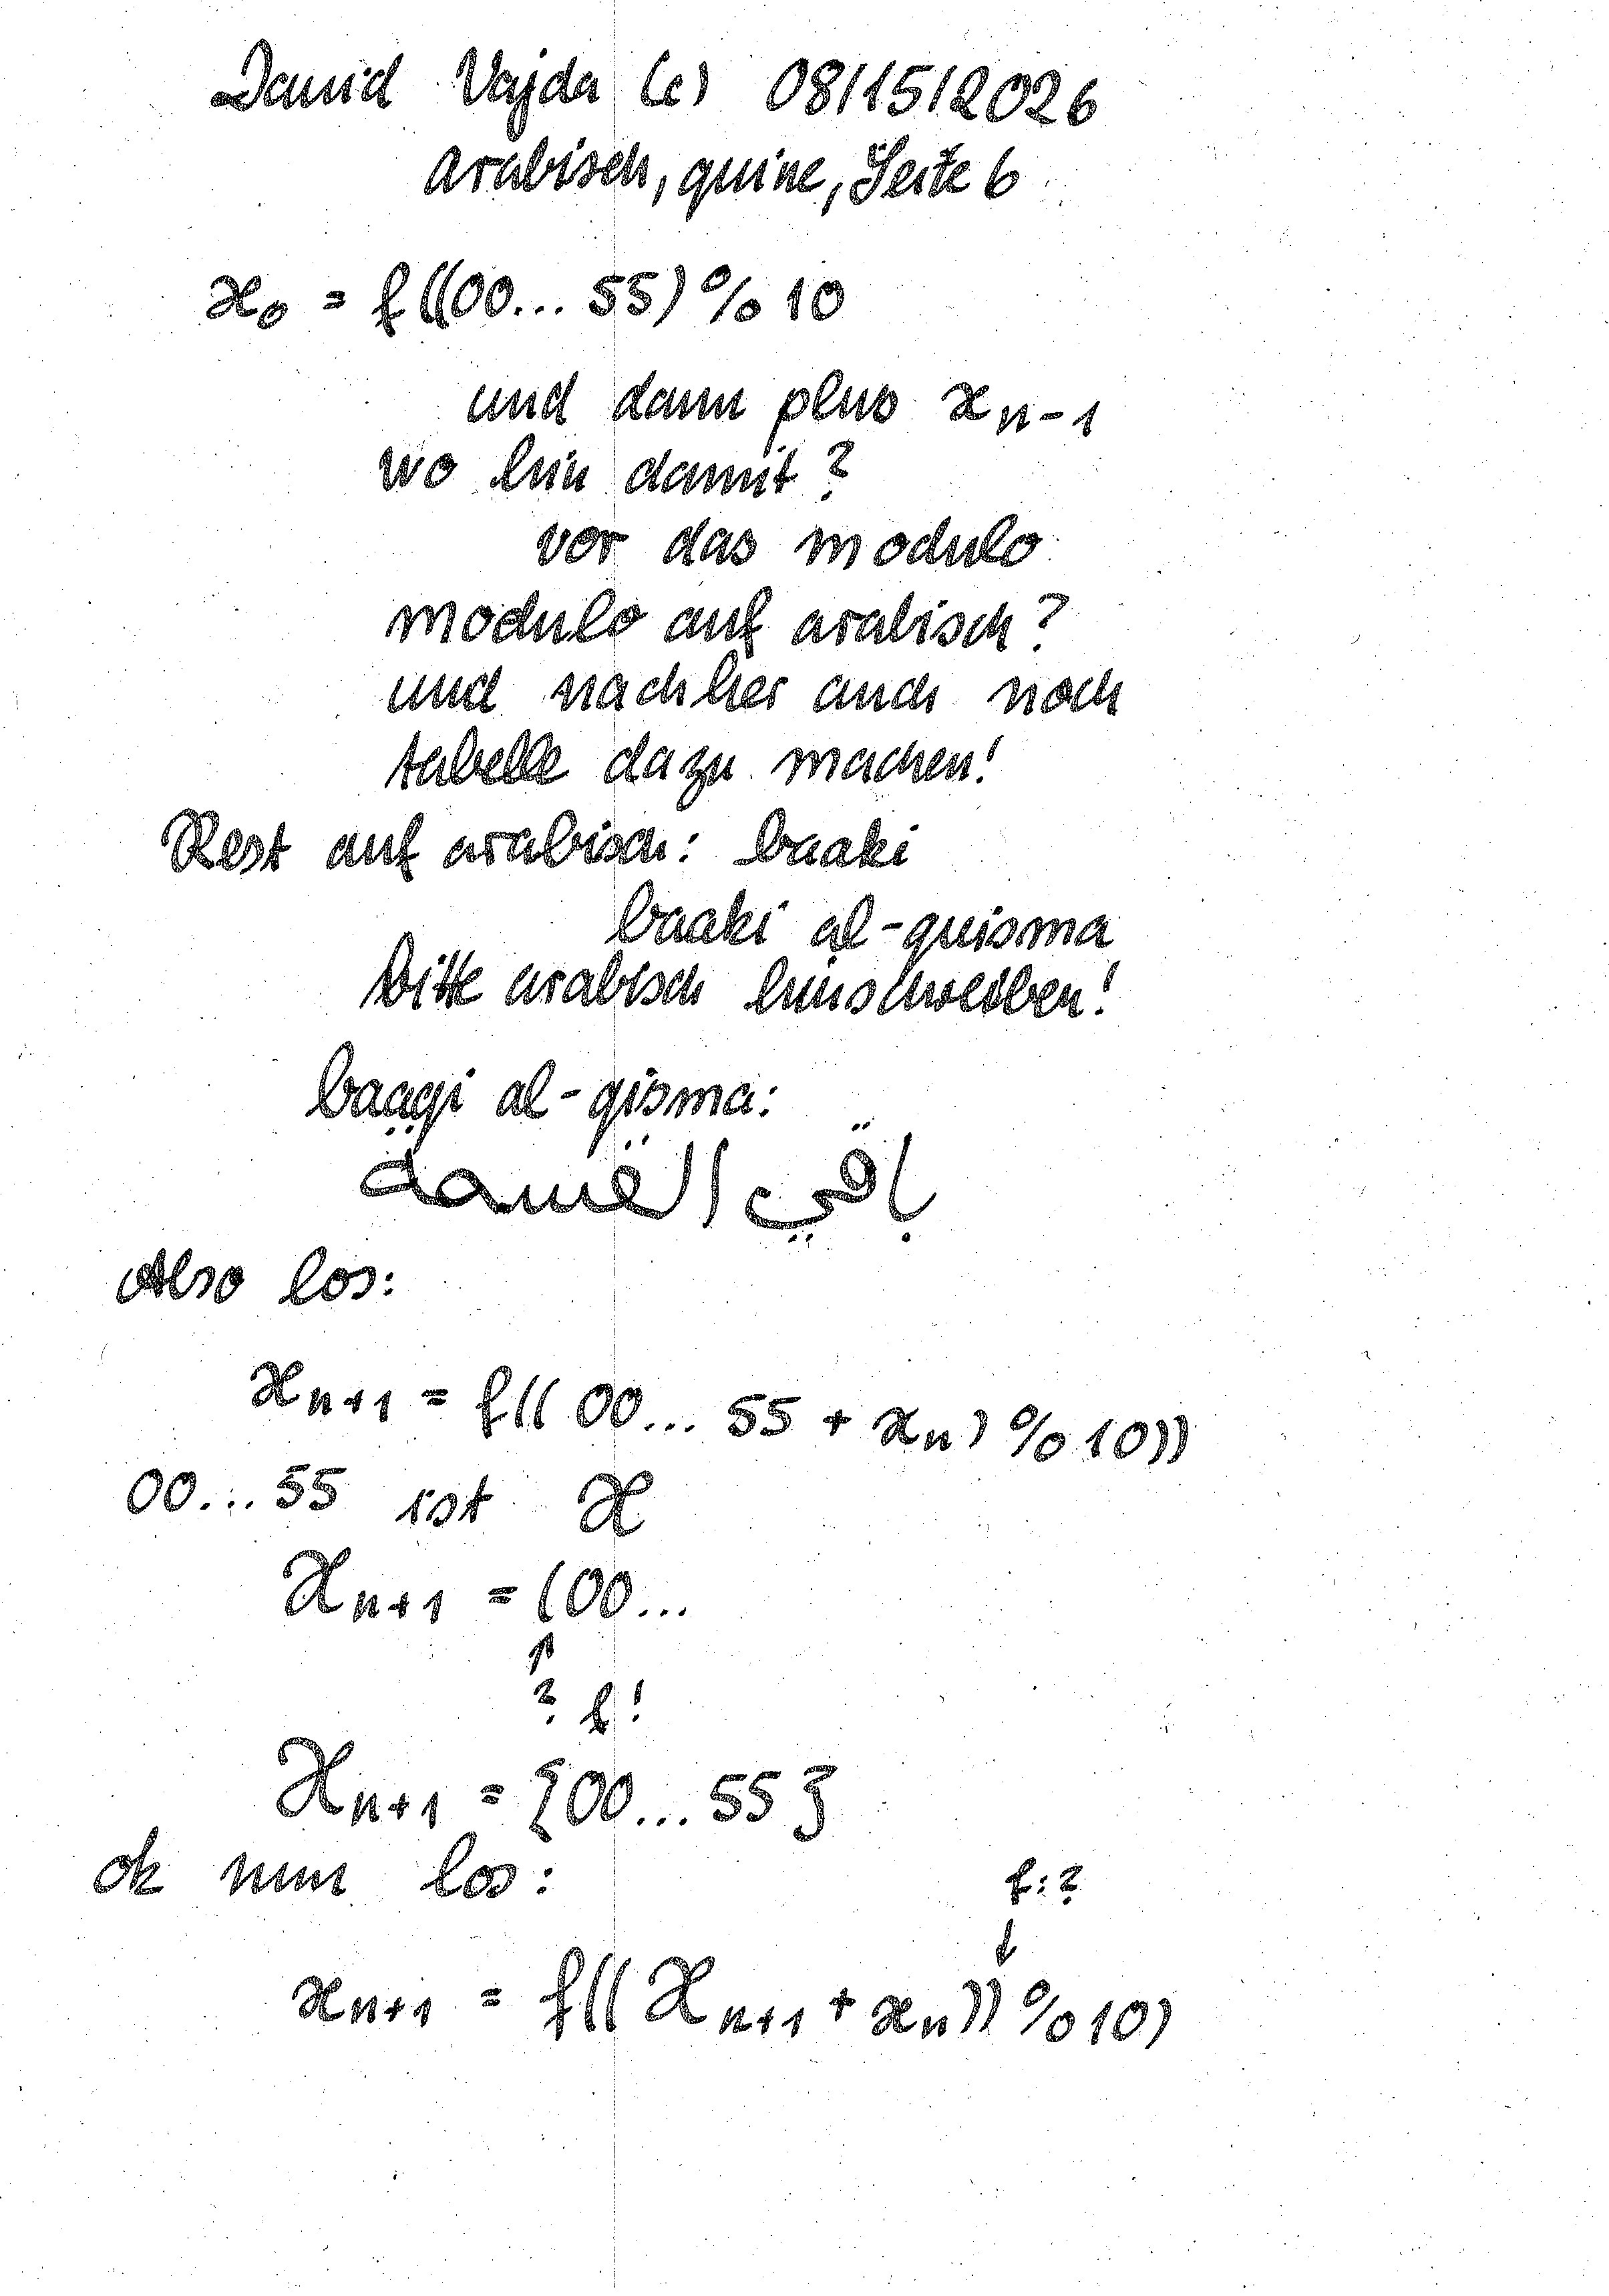 David Vajda (c) 08/15/2026
arabisch, quine, Seite 6
x₀ = f((00... 55) % 10
und dann plus xₙ₋₁
wo hin damit?
vor das modulo
modulo auf arabisch?
und nachher auch noch
tabelle dazu machen!
Rest auf arabisch: baaki
baaki al-quisma
bitte arabisch hinschreiben!
baaqi al-qisma:
باقي القسمة
Also los:
xₙ₊₁ = f(( 00... 55 + xₙ) % 10))
00... 55 ist X
Xₙ₊₁ = (00...
↑
? f!
Xₙ₊₁ = {00... 55}
ok nun los:
f:?
↓
xₙ₊₁ = f(( Xₙ₊₁ + xₙ)) % 10)